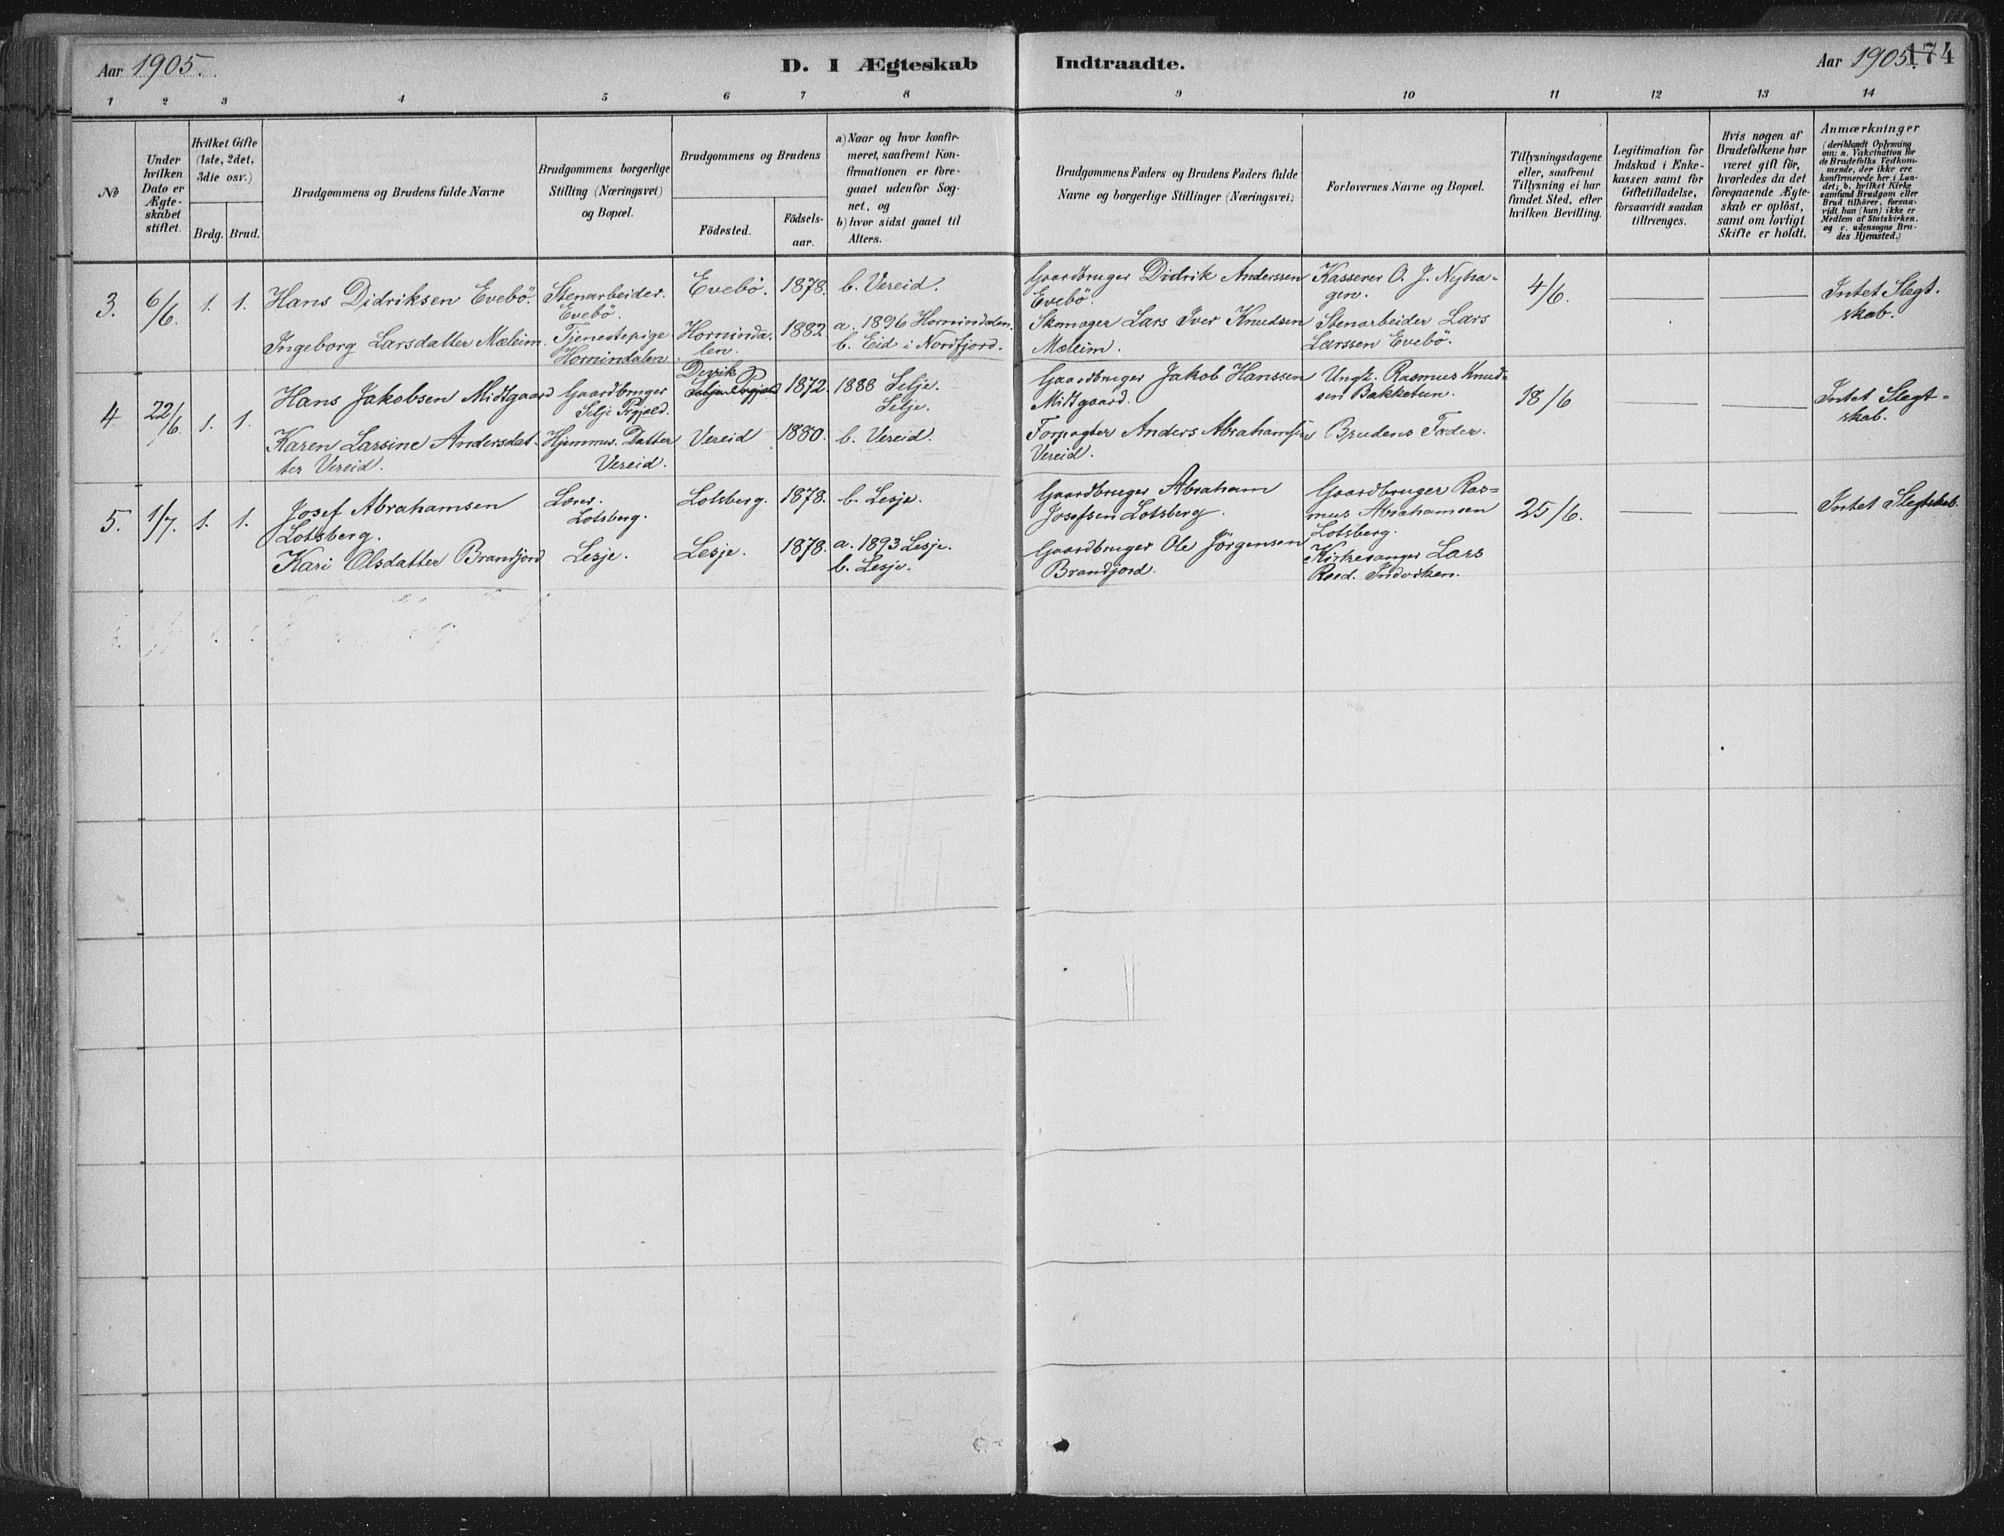 Aar 1905.
D. I Ægteskab
Indtraadte.
Aar 1905.
174
1 2 3 4 5 6 7 8 9 10 11 12 13 14
No
Under
hvilken
Dato er
Ægte-
skabet
stiftet.
Hvilket Gifte
(1ste, 2det,
3die osv.)
Brdg. Brud.
Brudgommens og Brudens fulde Navne
Brudgommens borgerlige
Stilling (Næringsvei)
og Bopæl.
Brudgommens og Brudens
Födested.
Födsels-
aar.
a) Naar og hvor konfir-
meret, saafremt Kon-
firmationen er fore-
gaaet udenfor Sog-
net, og
b) hvor sidst gaaet til
Alters.
Brudgommens Faders og Brudens Faders fulde
Navne og borgerlige Stillinger (Næringsvei)
Forlovernes Navne og Bopæl.
Tillysningsdagene
eller, saafremt
Tillysning ei har
fundet Sted, efter
hvilken Bevilling.
Legitimation for
Indskud i Enke-
kassen samt for
Giftetilladelse,
forsaavidt saadan
tiltrænges.
Hvis nogen af
Brudefolkene har
været gift för,
hvorledes da det
foregaaende Ægte-
skab er oplöst,
samt om lovligt
Skifte er holdt.
Anmærkninger
(deriblandt Oplysning
om: a. Vakcination for
de Brudefolks Vedkom-
mende, der ikke ere
konfirmerede her i Lan-
det; b. hvilket Kirke-
samfund Brudgom eller
Brud tilhörer, forsaa-
vidt han (hun) ikke er
Medlem af Statskirken.
og c. udensogns Bru-
des Hjemsted.)
3. 6/6. 1. 1.
Hans Didriksen Evebö.
Ingeborg Larsdatter Mæleim.
Stenarbeider.
Evebö.
Tjenestepige
Hornindalen
Evebö.
Horninda-
len.
1878.
1882
b. Vereid.
a. 1896 Hornindalen.
b. Eid i Nordfjord.
Gaardbruger Didrik Anderssen
Evebö.
Skomager Lars Iver Knudsen
Mæleim.
Kasserer O. J. Nyha-
gen.
Stenarbeider Lars
Larssen Evebö.
4/6.
Intet Slegt-
skab.
4 22/6. 1. 1.
Hans Jakobsen Midtgaard
Karen Larsine Andersdat-
ter Vereid.
Gaardbruger
Selje Prgjæld.
Hjemmev. Datter
Vereid.
Devik
Vereid
1872.
1880.
1888 Selje.
Selje.
b. Vereid.
Gaardbruger Jakob Hanssen
Midtgaard.
Forpagter Anders Abrahamsen
Vereid.
Ungk. Rasmus Knud-
sen Bakketun.
Brudens Fader.
18/6
Intet Slegt-
skab.
5. 1/7. 1. 1.
Josef Abrahamsen
Lotsberg.
Kari Olsdatter Brandjord
Lærer.
Lotsberg.
Lesje.
Lotsberg.
Lesje.
1878.
1878.
b. Lesje.
a. 1893 Lesje.
b. Lesje.
Gaardbruger Abraham
Josefsen Lotsberg.
Gaardbruger Ole Jörgensen
Brandjord.
Gaardbruger Ras-
mus Abrahamsen
Lotsberg.
Kirkesanger Lars
Reed. Indviken.
25/6.
Intet Slegtskab.